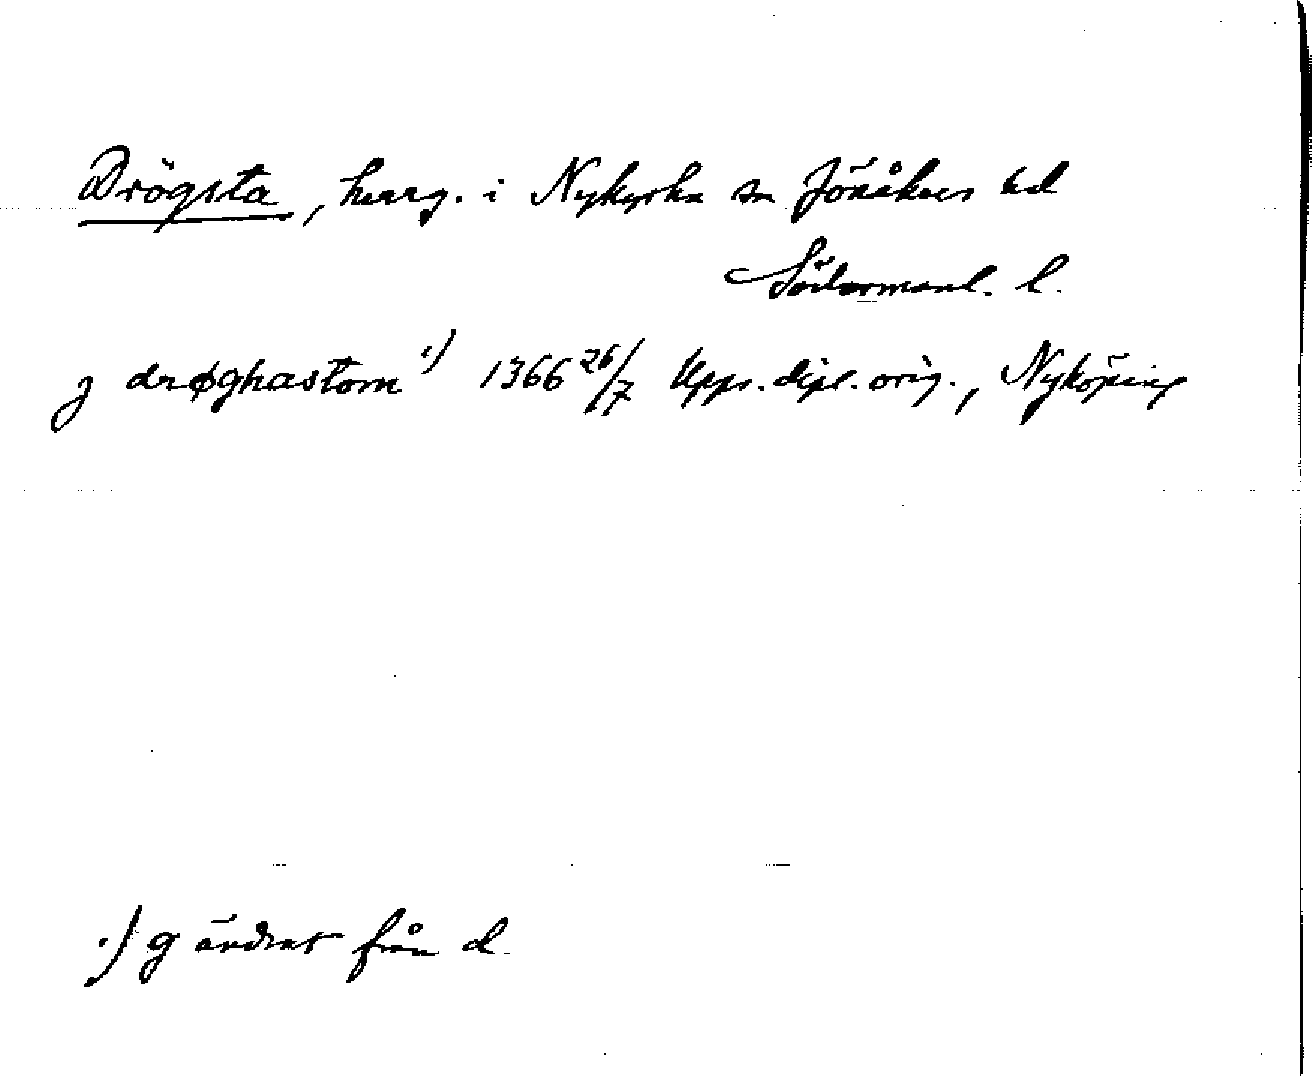 Drögsta, herrg. i Nykyrka sn Jönåkers hd
Södermanl. l.
j drøghastom ¹) 1366 26/7 Upps. dipl. orig., Nyköping
¹) g ändrat från d